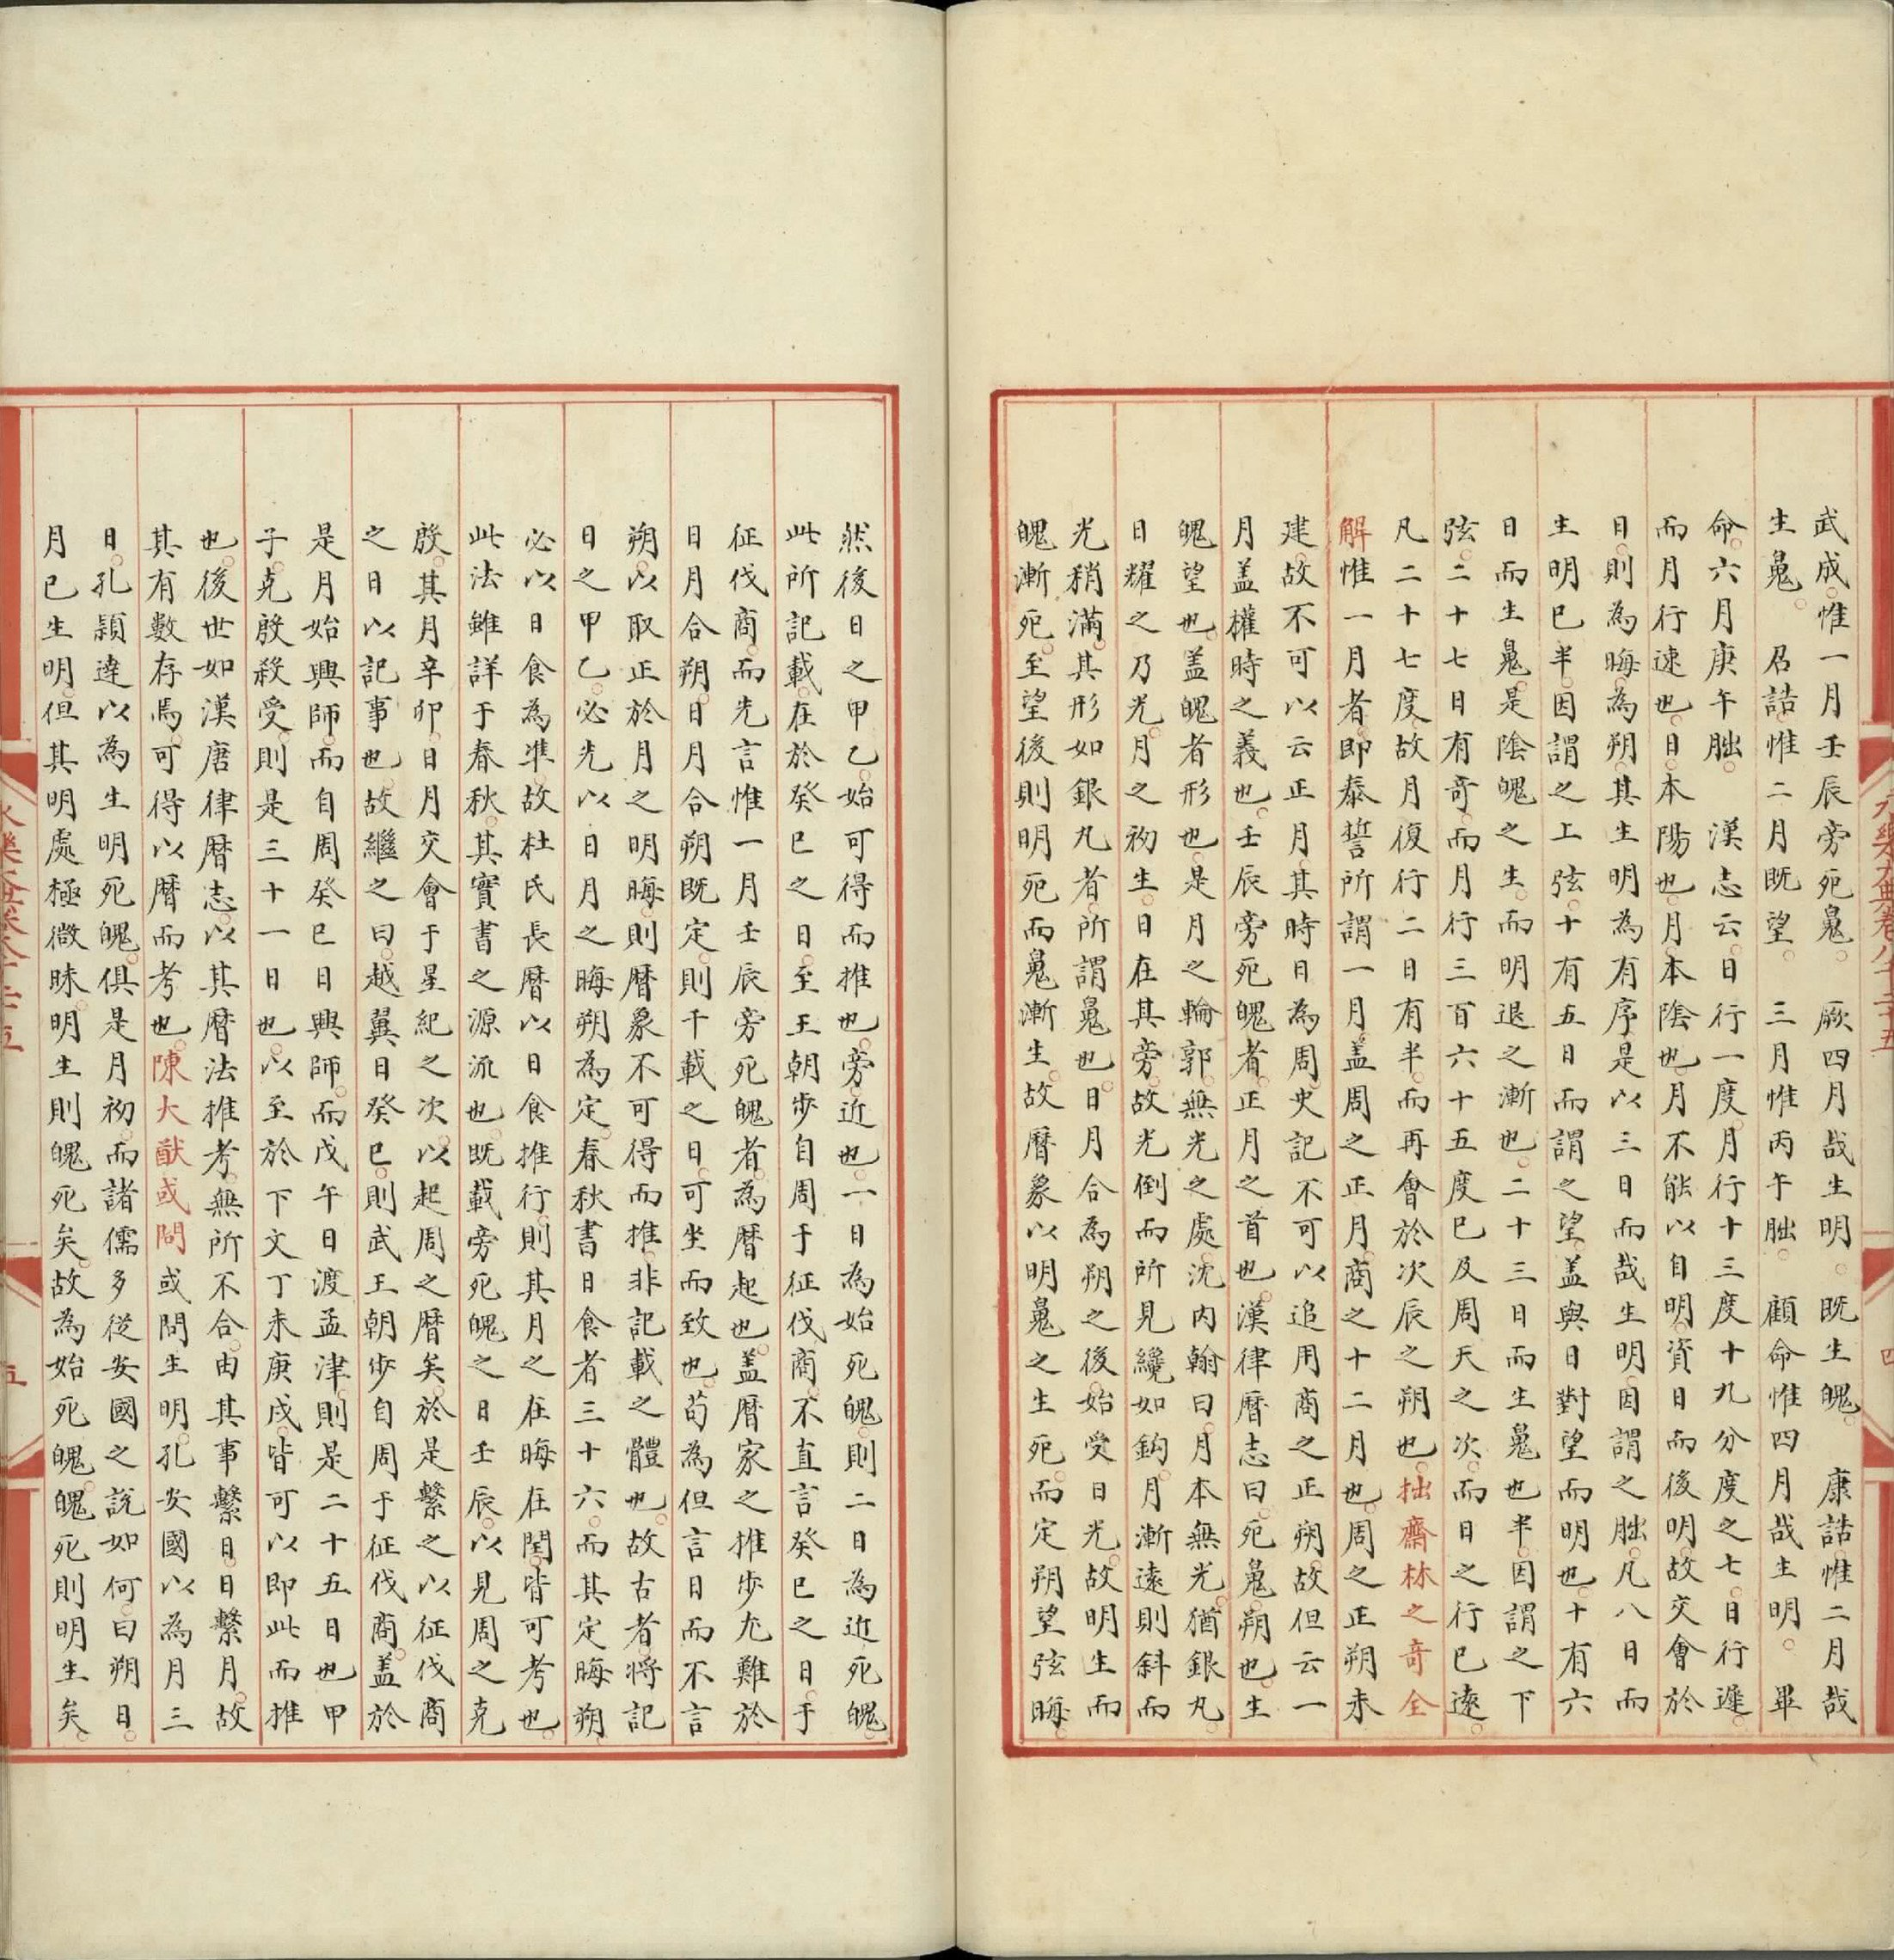 武成惟一月壬辰旁死鬼 厥四月哉生明 既生魄 康誥惟二月哉
生鬼 召誥惟二月既望 三月惟丙午朏 顧命惟四月哉生明 畢
命六月庚午朏 漢志云日行一度月行十三度十九分度之七日行遲
而月行速也日本陽也月本陰也月不能以自明資日而後明故交會於
日則為晦為朔其生明為有序是以三日而哉生明因謂之朏凡八日而
生明巳半因謂之上弦十有五日而謂之望盖與日對望而明也十有六
日而生鬼是陰魄之生而明退之漸也二十三日而生鬼也半因謂之下
弦二十七日有奇而月行三百六十五度巳及周天之次而日之行已遠
凡二十七度故月復行二日有半而再會於次辰之朔也拙齋林之奇全
解惟一月者即泰誓所謂一月盖周之正月商之十二月也周之正朔未
建故不可以云正月其時日為周史記不可以追用商之正朔故但云一
月盖權時之義也壬辰旁死魄者正月之首也漢律曆志曰死鬼朔也生
魄望也盖魄者形也是月之輪郭無光之處沈内翰曰月本無光猶銀丸
日耀之乃光月之初生日在其旁故光倒而所見纔如鈎月漸遠則斜而
光稍滿其形如銀凡者所謂鬼也日月合為朔之後始受日光故明生而
魄漸死至望後則明死而鬼漸生故曆象以明鬼之生死而定朔望弦晦
然後日之甲乙始可得而推也旁近也一日為始死魄則二日為近死魄
此所記載在於癸巳之日至王朝步自周于征伐商不直言癸巳之日于
征伐商而先言惟一月壬辰旁死魄者為曆起也盖曆家之推步尤難於
日月合朔日月合朔既定則千載之日可坐而致也苟為但言日而不言
朔以取正於月之明晦則曆象不可得而推非記載之體也故古者將記
日之甲乙必先以日月之晦朔為定春秋書日食者三十六而其定晦朔
必以日食為準故杜氏長曆以日食推行則其月之在晦在閏皆可考也
此法雖詳于春秋其實書之源流也既載旁死魄之日壬辰以見周之克
殷其月辛卯日月交會于星紀之次以起周之曆矣於是繫之以征伐商
之日以記事也故繼之曰越翼日癸巳則武王朝步自周于征伐商盖於
是月始興師而自周癸巳日興師而戊午日渡孟津則是二十五日也甲
子克殷殺受則是三十一日也以至於下文丁未庚戌皆可以即此而推
也後世如漢唐律曆志以其曆法推考無所不合由其事繫日日繫月故
其有數存焉可得以曆而考也陳大猷或問或問生明孔安國以為月三
日孔穎達以為生明死魄俱是月初而諸儒多從安國之說如何曰朔日
月已生明但其明處極微昧明生則魄死矣故為始死魄魄死則明生矣